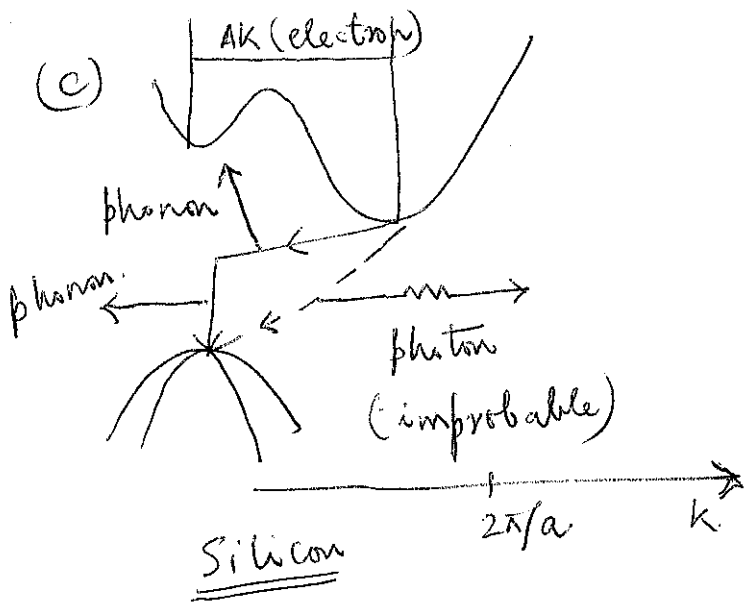 ΔK (electron)
(C)
phonon
phonon.
photon
(improbable)
2π/a.
K.
Silicon